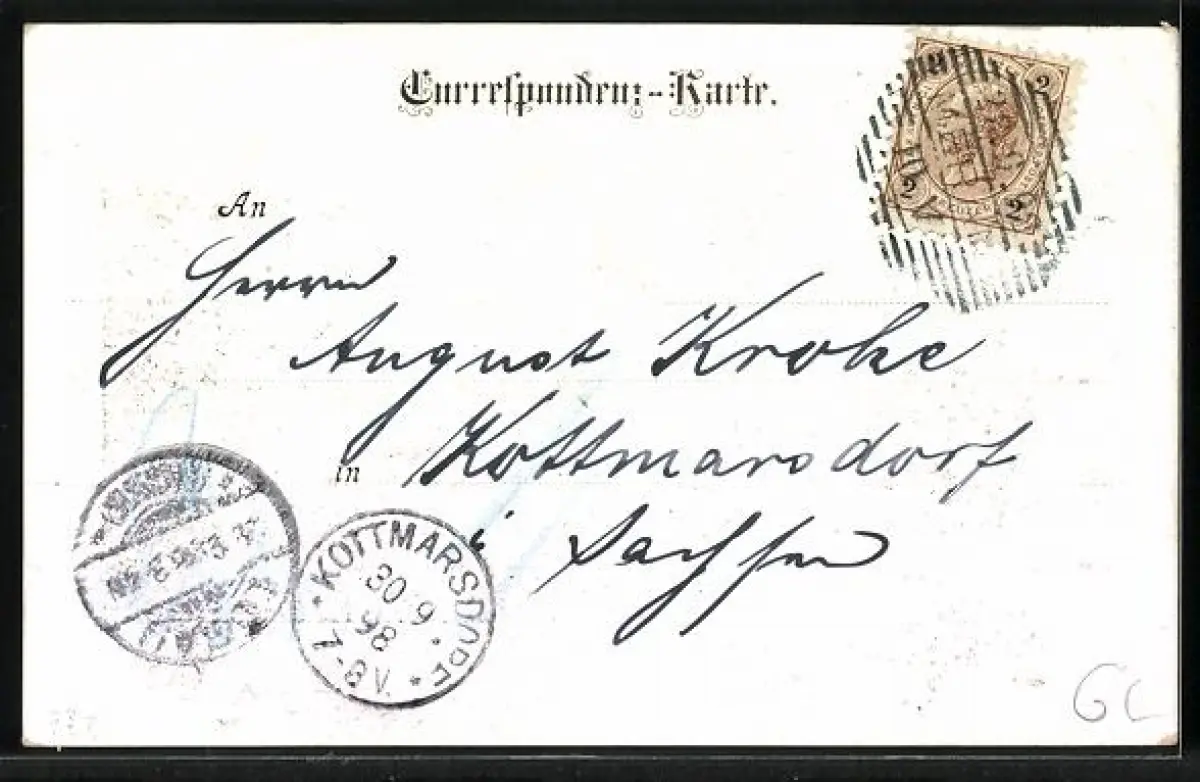 Correspondenz-Karte.
2
2
2
An
Herrn
August Krohe
in Kottmarsdorf
i Sachsen
* KOTTMARSDORF *
30 9
98
7-8 V.
GL